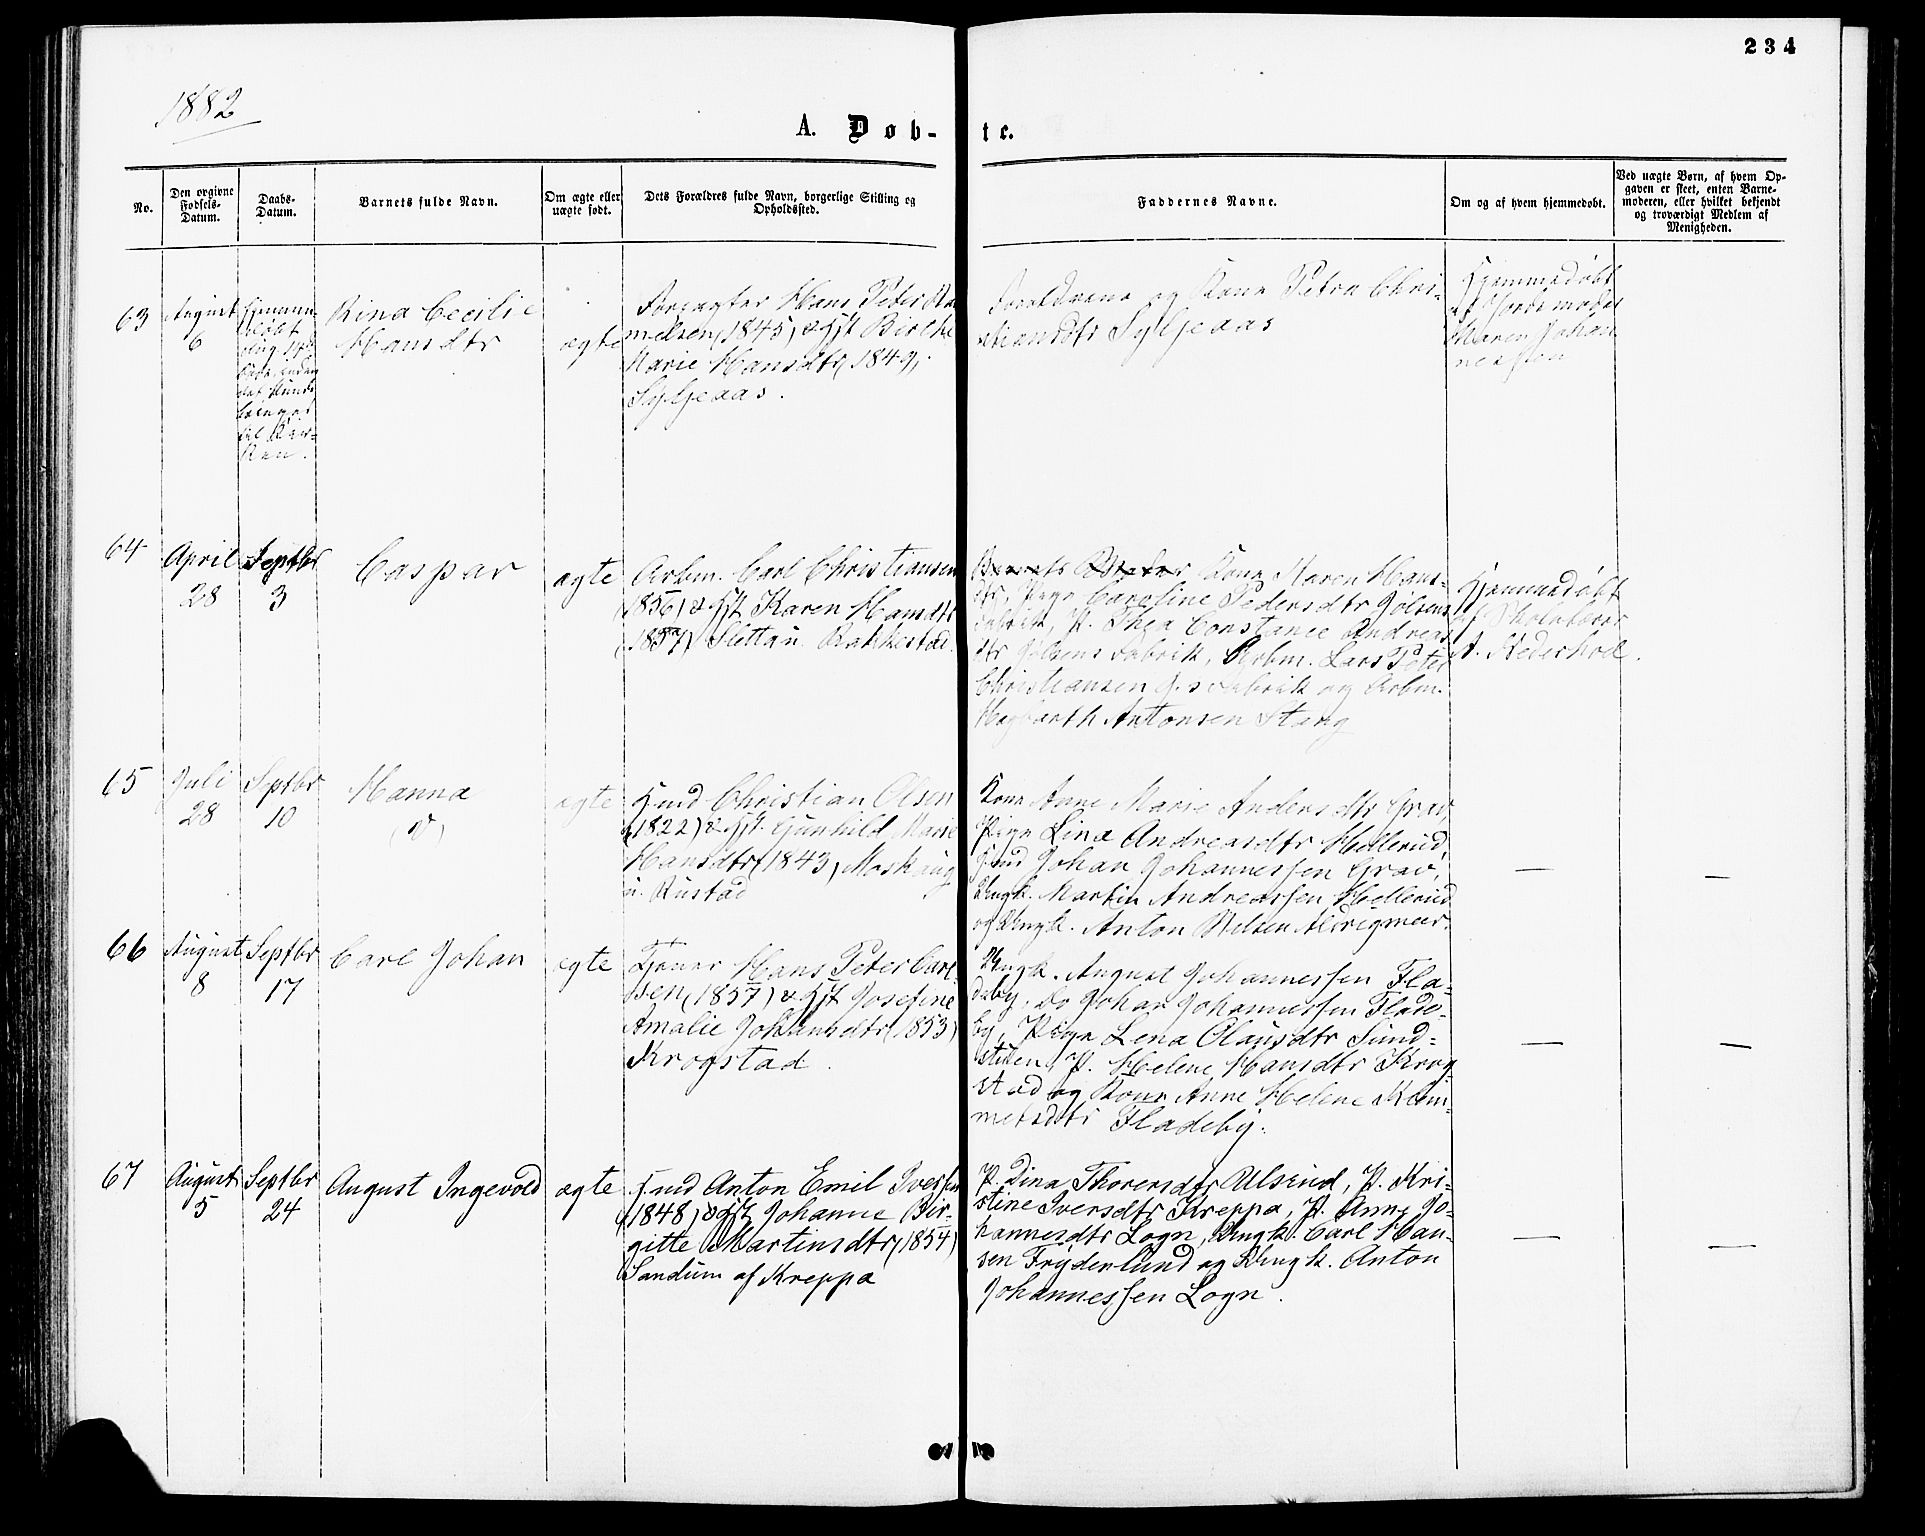 234
1882
A. Døb-
te.
No.
Den opgivne
Fødsels-
Datum.
Daabs-
Datum.
Barnets fulde Navn.
Om ægte eller
uægte født.
Dets Forældres fulde Navn, borgerlige Stilling og
Opholdssted.
Faddernes Navne.
Om og af hvem hjemmedøbt.
Ved uægte Børn, af hvem Op-
gaven er skeet, enten Barne-
moderen, eller hvilket bekjendt
og troværdigt Medlem af
Menigheden.
63
August
6
Hjemme-
døbt
det kunde
bringes
til Kir-
ken.
Rina Cecilie
Hansdtr
ægte
Forpagter Hans Peter
melsen (1845) & Hst
Marie Hansdtr (1849,
Syljeaas.
Forældrene og Kone Petra Chri-
stiansdtr Syljeaas
Hjemmedøbt
af Jordemoder
Maren Johan-
nessen
64
April
28
Septbr
3
Caspar
ægte
Arbm. Carl Christiansen
(1856) & Hst Karen Hansdtr
(1857) Slettau. Rakkestad.
Barnets Moder Kone Karen Hans-
dtr, Pige Caroline Pedersdtr Jølsens
Fabrik, P. Thea Constance Andreas-
dtr Jølsens Fabrik, Arbm. Lars Peter
Christiansen J.s Fabrik og Arbm.
Hagbarth Antonsen Stang
Hjemmedøbt
af Skolelærer
A. Nederhoel.
65
Juli
28
Septbr
10
Hanna
(V)
ægte
Hmd Christian Olsen
(1822) & Hst. Gunhild Marie
Hansdtr (1843) Moskaug
u. Rustad
Kone Anne Marie Andersdtr Grav,
Pige Lina Andreasdtr Hellerud
Hmd Johan Johannessen Grav,
Ungk. Martin Andreassen Hellerud
og Ungk. Anton Nilsen
— —
66
August
8
Septbr
17
Carl Johan
ægte
Tjener Hans Peter Carl-
sen (1857) & Hst Josefine
Amalie Johannsdtr (1853)
Krogstad.
Ungk. August Johannessen Fla-
deby. Do Johan Johannessen Flade-
by, Pige Lena Olausdtr Sund-
stuen, P. Helene Hansdtr Krog-
stad og Kone Anne Helene Klem-
metsdtr Fladeby.
— —
67
August
5
Septbr
24
August Ingevold
ægte
Hmd Anton Emil Iversen
(1848) & Hst Johanne Bir-
gitte Martinsdtr (1854)
Sandum af Kreppa
P. Dina Thorersdtr Ulsrud, P. Kri-
stine Iversdtr Kreppa, P. Anne Jo-
hannesdtr Logn, Ungk. Carl Han-
sen Frydenlund og Ungk. Anton
Johannessen Logn.
— —